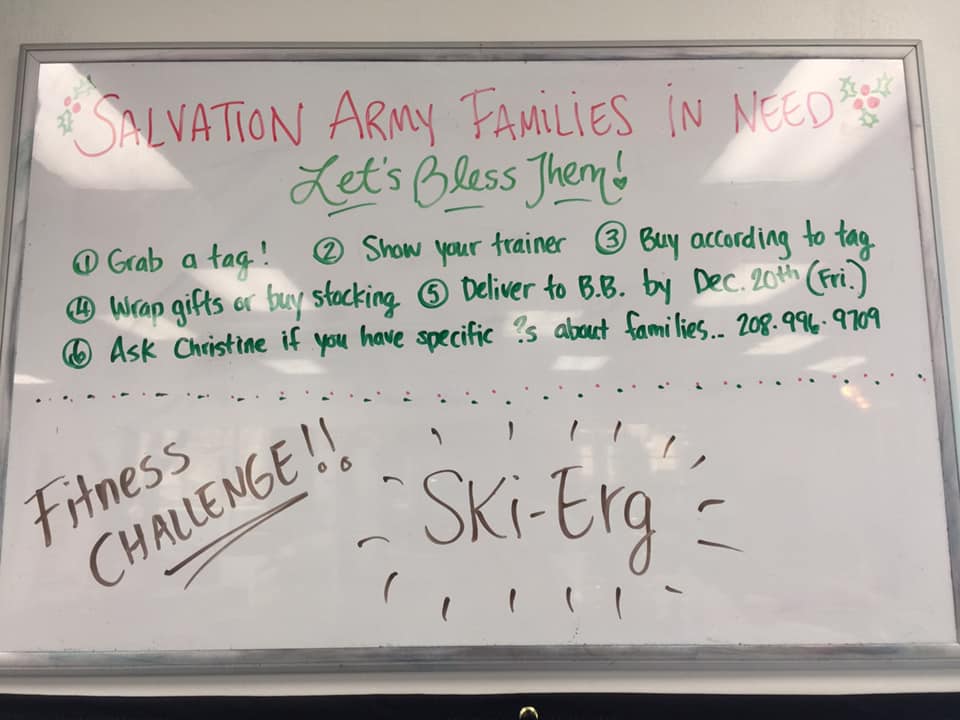 SALVATION ARMY FAMILIES IN NEED
Let's Bless Them!
① Grab a tag! ② Show your trainer ③ Buy according to tag
④ Wrap gifts or buy stocking ⑤ Deliver to B.B. by Dec. 20th (Fri.)
⑥ Ask Christine if you have specific ?s about families... 208·996·9709
Fitness
CHALLENGE!!
SKi-Erg